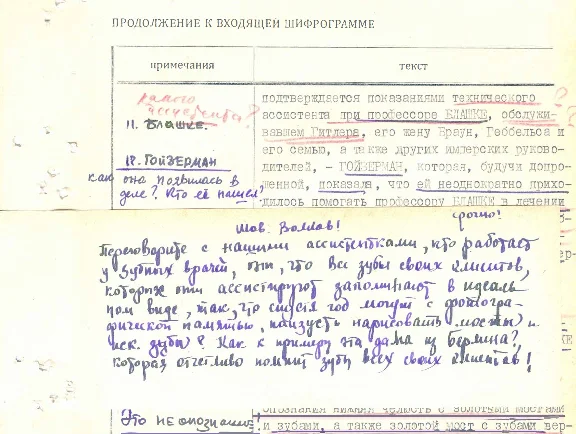 ПРОДОЛЖЕНИЕ К ВХОДЯЩЕЙ ШИФРОГРАММЕ
примечания
текст
какого
пациента?
11. БЛАШКЕ.
12. ГОЙЗЕРМАН
как она появилась в
деле? Кто её нашел?
подтверждается показаниями технического ?
ассистента при профессоре БЛАШКЕ, обслужи-
вавшем Гитлера, его жену Браун, Геббельса и
его семью, а также других имперских руково-
дителей, – ГОЙЗЕРМАН, которая, будучи допро-
шенной, показала, что ей неоднократно прихо-
дилось помогать профессору БЛАШКЕ в лечении
срочно!
тов. Волков!
Переговорите с нашими ассистентками, кто работает
у зубных врачей, они, что все зубы своих клиентов,
которых они ассистируют запоминают в идеаль
ном виде, так, что спустя год могут с фотогра-
фической памятью, наизусть нарисовать мосты и
иск. зубы? Как к примеру эта дама из Берлина?,
которая отчетливо помнит зубы всех своих клиентов!
Это НЕ опознание
опознания нижняя челюсть с золотыми мостами
и зубами, а также золотой мост с зубами вер-